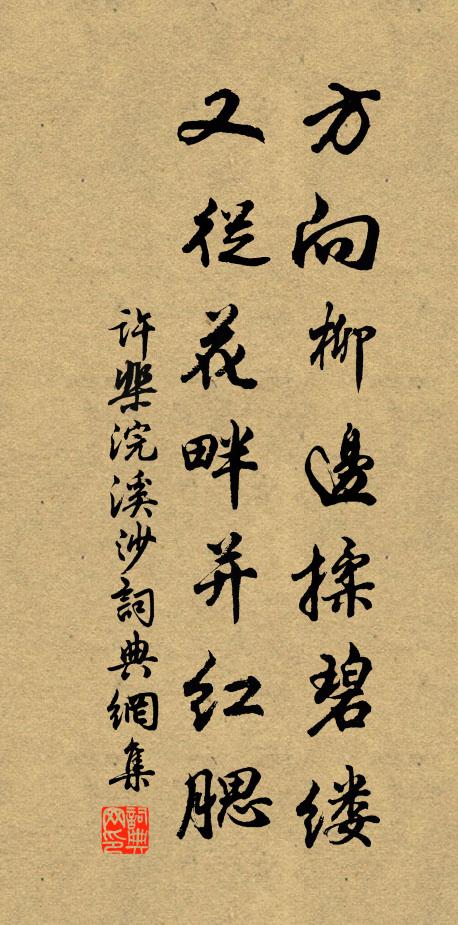 方向柳邊揉碧缕
又從花畔并紅腮
许棐浣溪沙詞典網集
詞典网印